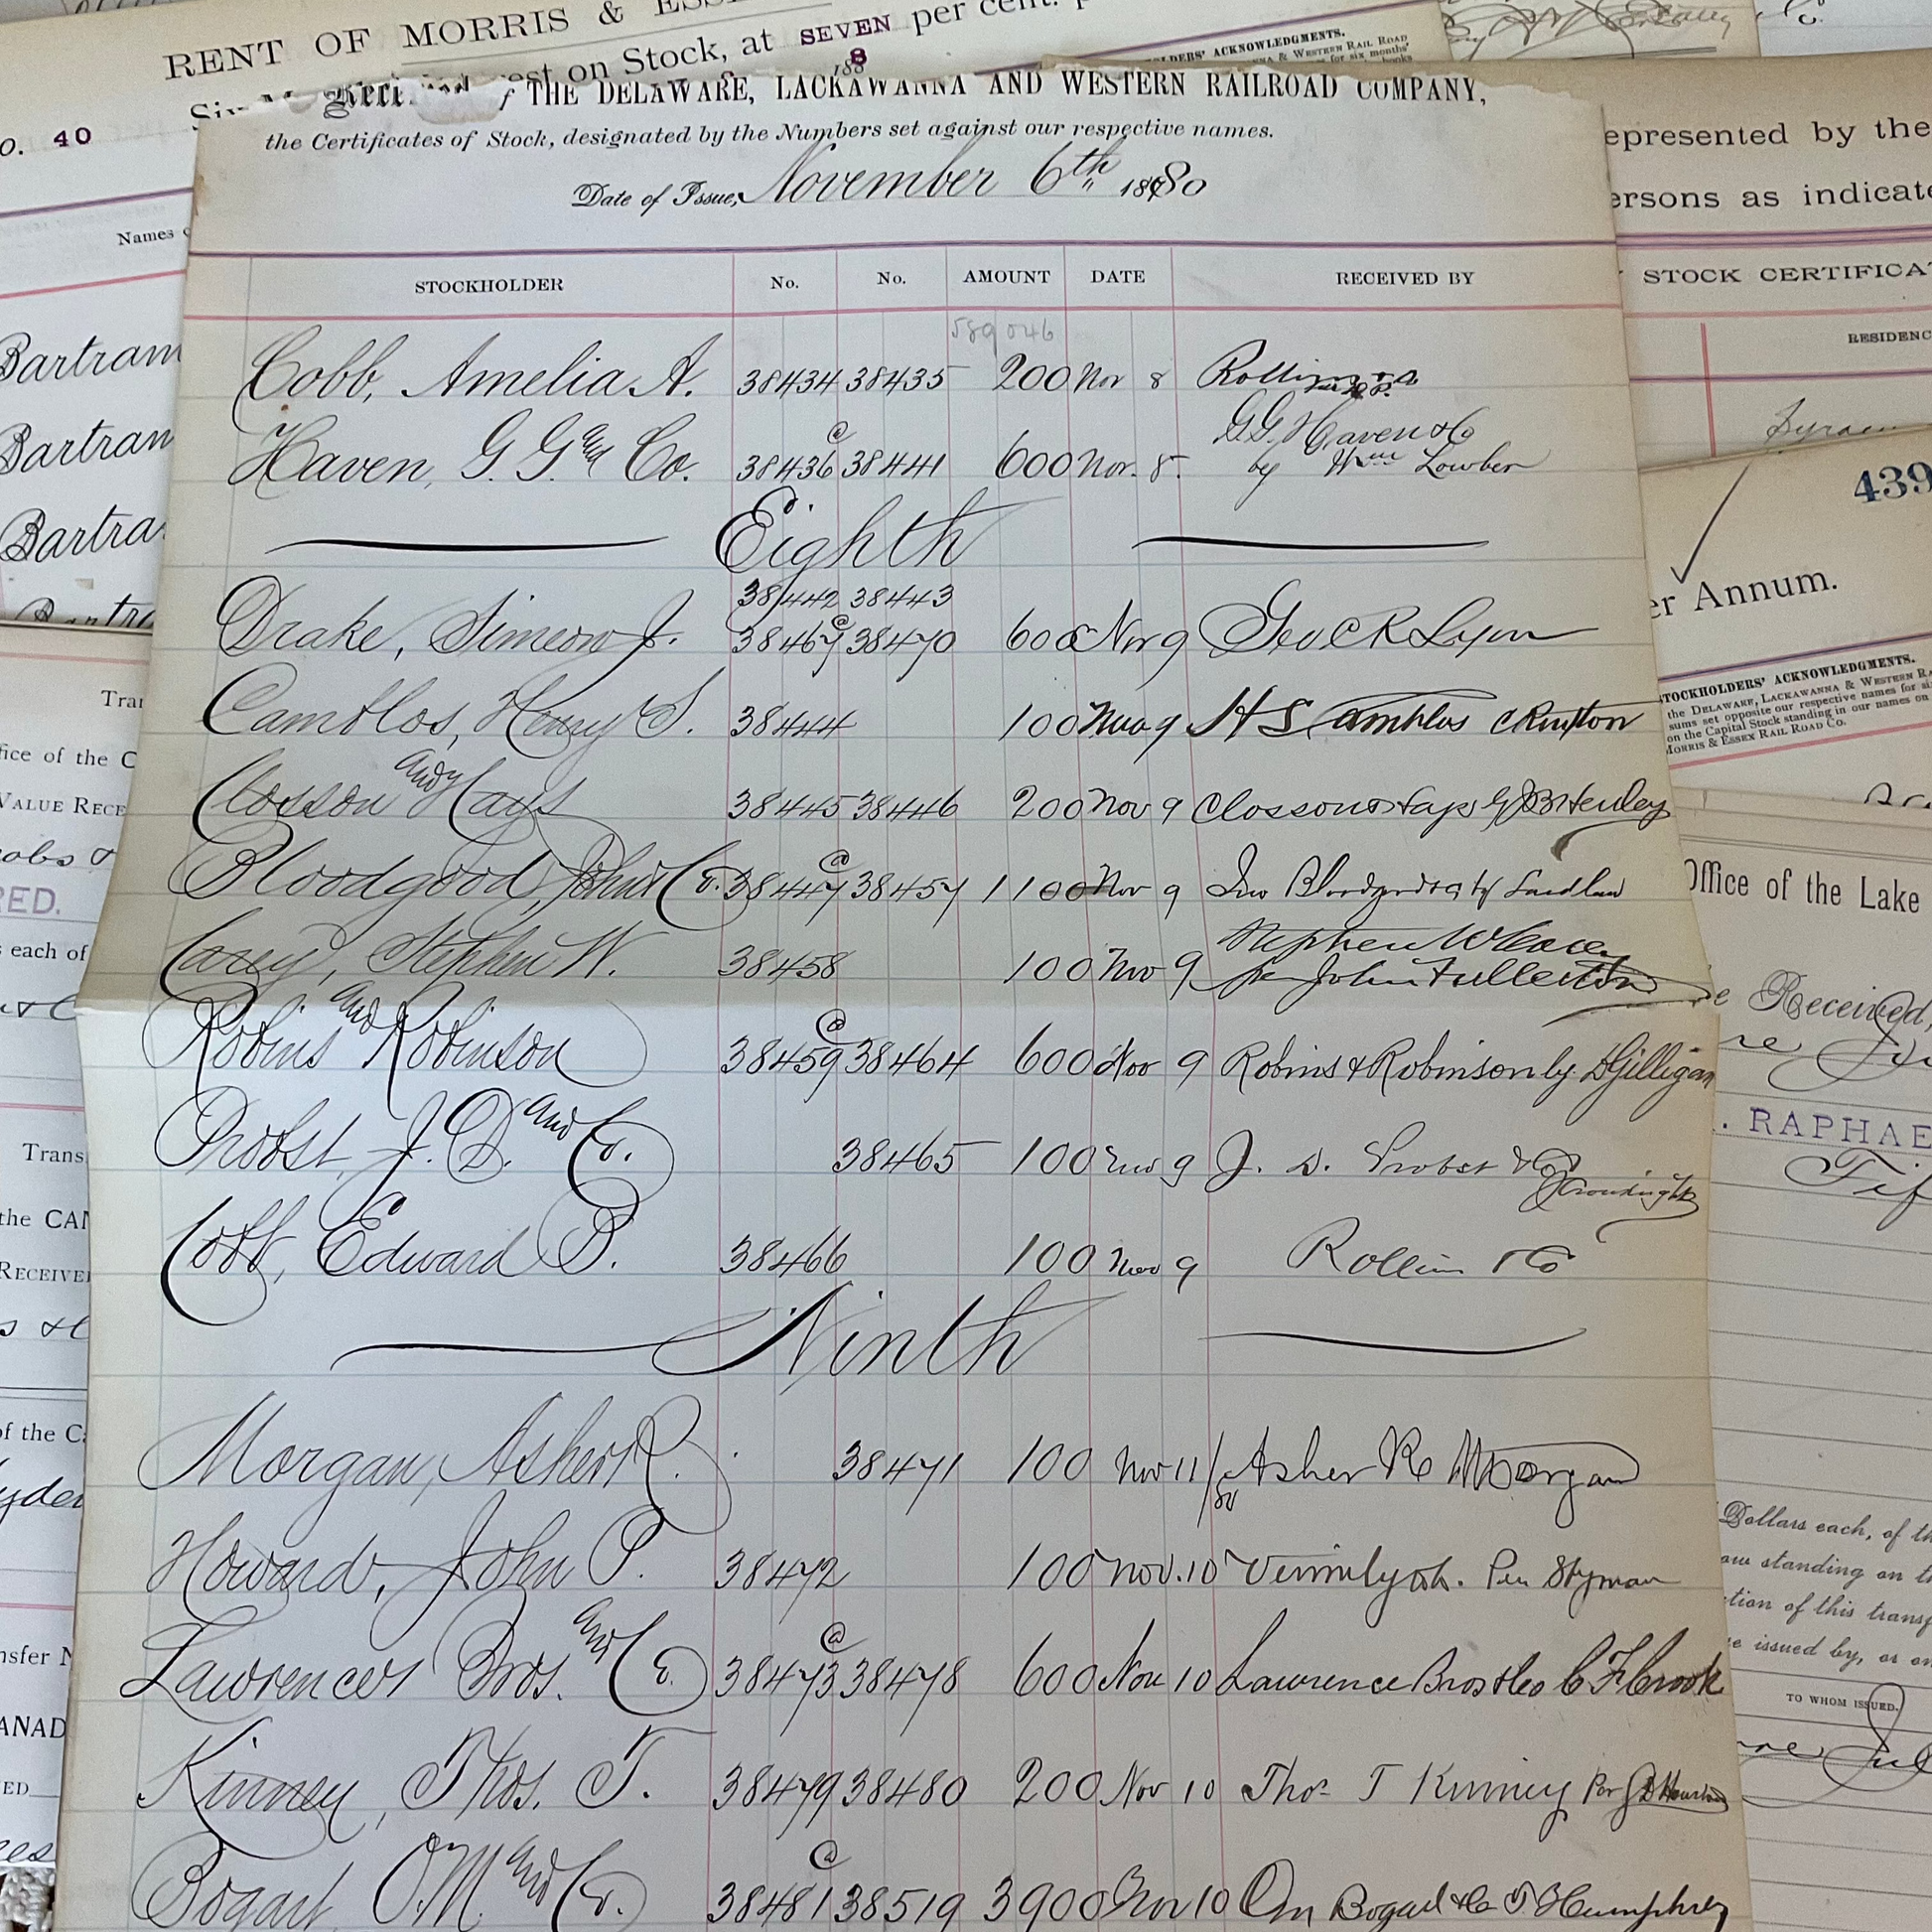 RENT OF MORRIS &
est on Stock, at SEVEN per cent.
1888
No. 40
THE DELAWARE, LACKAWANNA AND WESTERN RAILROAD COMPANY,
the Certificates of Stock, designated by the Numbers set against our respective names.
Date of Issue, November 6th 1880
STOCKHOLDER No. No. AMOUNT DATE RECEIVED BY
589046
Cobb, Amelia A. 38434 38435 200 Nov 8
Haven, G. G. and Co. 38436 @ 38441 600 Nov. 8 G.G. Haven & Co
by Wm Lowber
Eighth
38442 38443
Drake, Simeon J. 38467 @ 38470 600 Nov 9 Geo C R Lyon
Camblos, Henry S. 38444 100 Nov 9 H S Camblos
Closson and Hays 38445 38446 200 Nov 9 Closson & Hays
Bloodgood, John & Co. 38447 @ 38457 1100 Nov 9 Jno Bloodgood & Co by Laidlaw
Carey, Stephen W. 38458 100 Nov 9 Stephen W Carey
per John Fullerton
Robins and Robinson 38459 @ 38464 600 Nov 9 Robins & Robinson by D Gilligan
Probst, J. D. and Co. 38465 100 Nov 9 J. D. Probst & Co
Cobb, Edward B. 38466 100 Nov 9 Rollin & Co
Ninth
Morgan, Asher R. 38471 100 Nov 11/80 Asher R Morgan
Howard, John P. 38472 100 Nov. 10 Vermilye & Co. Per
Lawrence Bros. and Co. 38473 @ 38478 600 Nov 10 Lawrence Bros & Co
Kinney, Thos. T. 38479 38480 200 Nov 10 Thos T Kinney Per
Bogart, O. M. and Co. 38481 @ 38519 3900 Nov 10 Om Bogart & Co Humphrey
Names
Bartram
Bartram
Bartra
Bartr
VALUE RECE
each of
the CAN
RECEIVE
of the C
STOCKHOLDERS' ACKNOWLEDGMENTS.
epresented by the
ersons as indicate
STOCK CERTIFICA
RESIDENC
439
er Annum.
STOCKHOLDERS' ACKNOWLEDGMENTS.
the DELAWARE, LACKAWANNA & WESTERN
sums set opposite our respective names for
on the Capital Stock standing in our names on
MORRIS & ESSEX RAIL ROAD CO.
Office of the Lake
Received,
RAPHAE
Dollars each, of
standing on
tion of this transf
issued by, or
TO WHOM ISSUED.